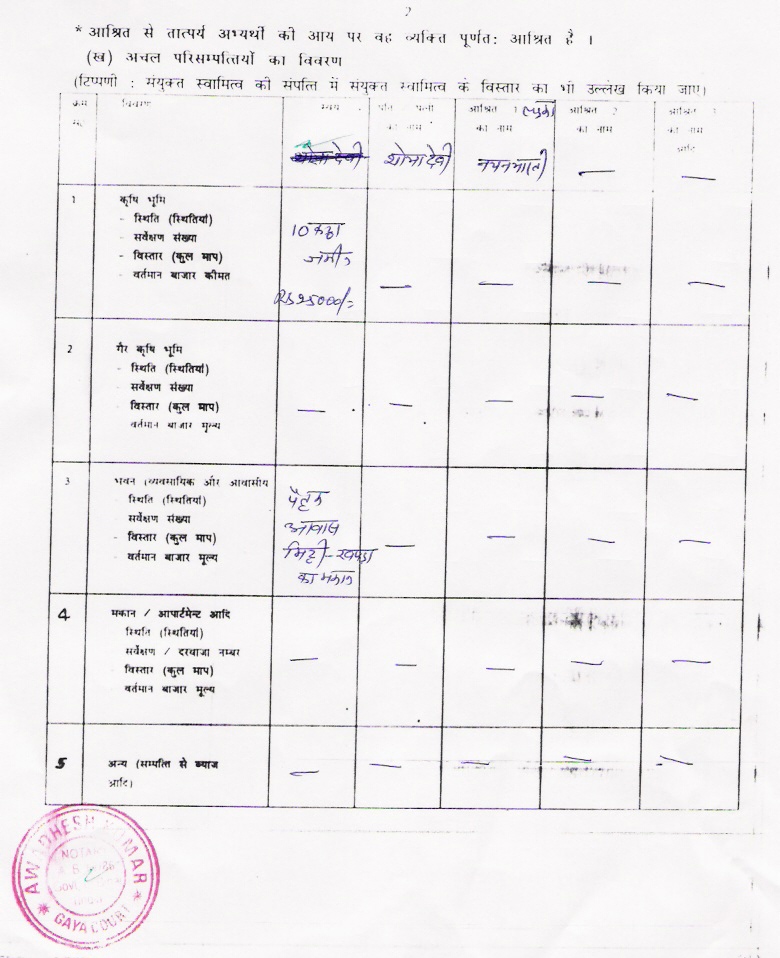 2
* आश्रित से तात्पर्य अभ्यर्थी की आय पर वह व्यक्ति पूर्णत: आश्रित है ।
(ख) अचल परिसम्पत्तियों का विवरण
(टिप्पणी : संयुक्त स्वामित्व की संपत्ति में संयुक्त स्वामित्व के विस्तार का भी उल्लेख किया जाए)
क्रम विवरण स्वयं पति पत्नी आश्रित 1 आश्रित 2 आश्रित 3
सं. का नाम का नाम का नाम का नाम
आदि
शोभा देवी शोभा देवी नयन भारती — —
1 कृषि भूमि
- स्थिति (स्थितियां)
- सर्वेक्षण संख्या 10 कट्ठा
- विस्तार (कुल माप) जमीन
- वर्तमान बाजार कीमत — — — —
RS 25000/=
2 गैर कृषि भूमि
- स्थिति (स्थितियां)
- सर्वेक्षण संख्या
- विस्तार (कुल माप) — — — — —
वर्तमान बाजार मूल्य
3 भवन (व्यवसायिक और आवासीय
- स्थिति (स्थितियां) पैतृक
सर्वेक्षण संख्या आवास
- विस्तार (कुल माप) — — — —
- वर्तमान बाजार मूल्य मिट्टी - खपड़ा
का मकान
4 मकान / आपार्टमेन्ट आदि
स्थिति (स्थितियां)
सर्वेक्षण / दरवाजा नम्बर
विस्तार (कुल माप) — — — — —
वर्तमान बाजार मूल्य
5 अन्य (सम्पत्ति से ब्याज — — — — —
आदि)
AWADHESH KUMAR
NOTARY
GAYA COURT